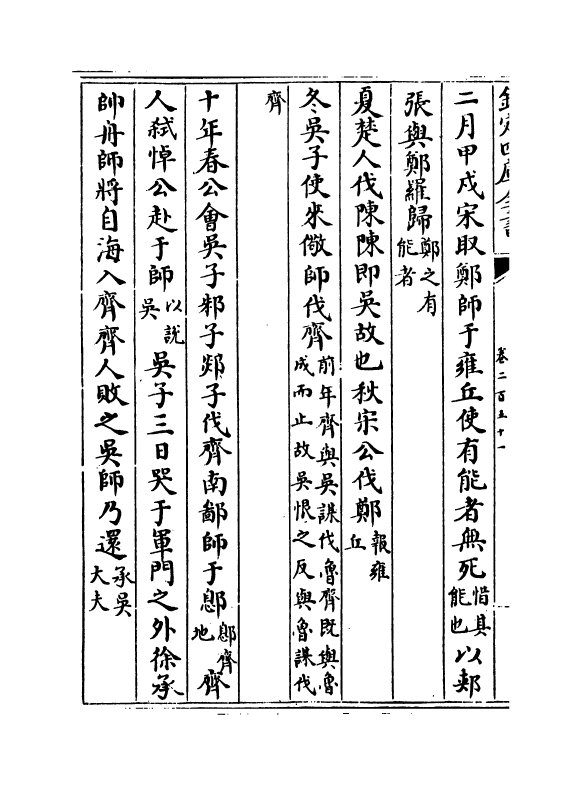 欽定四庫全書
卷二百五十一
二月甲戌宋取鄭師于雍丘使有能者無死惜其能也以郟
張與鄭羅歸鄭之有能者
夏楚人伐陳陳即吳故也秋宋公伐鄭報雍丘
冬吳子使來儆師伐齊前年齊與吳謀伐魯齊既與魯成而止故吳恨之反與魯謀伐
齊
十年春公會吳子邾子郯子伐齊南鄙師于鄎鄎齊地齊
人弒悼公赴于師以說吳吳子三日哭于軍門之外徐承
帥舟師將自海入齊齊人敗之吳師乃還承吳大夫